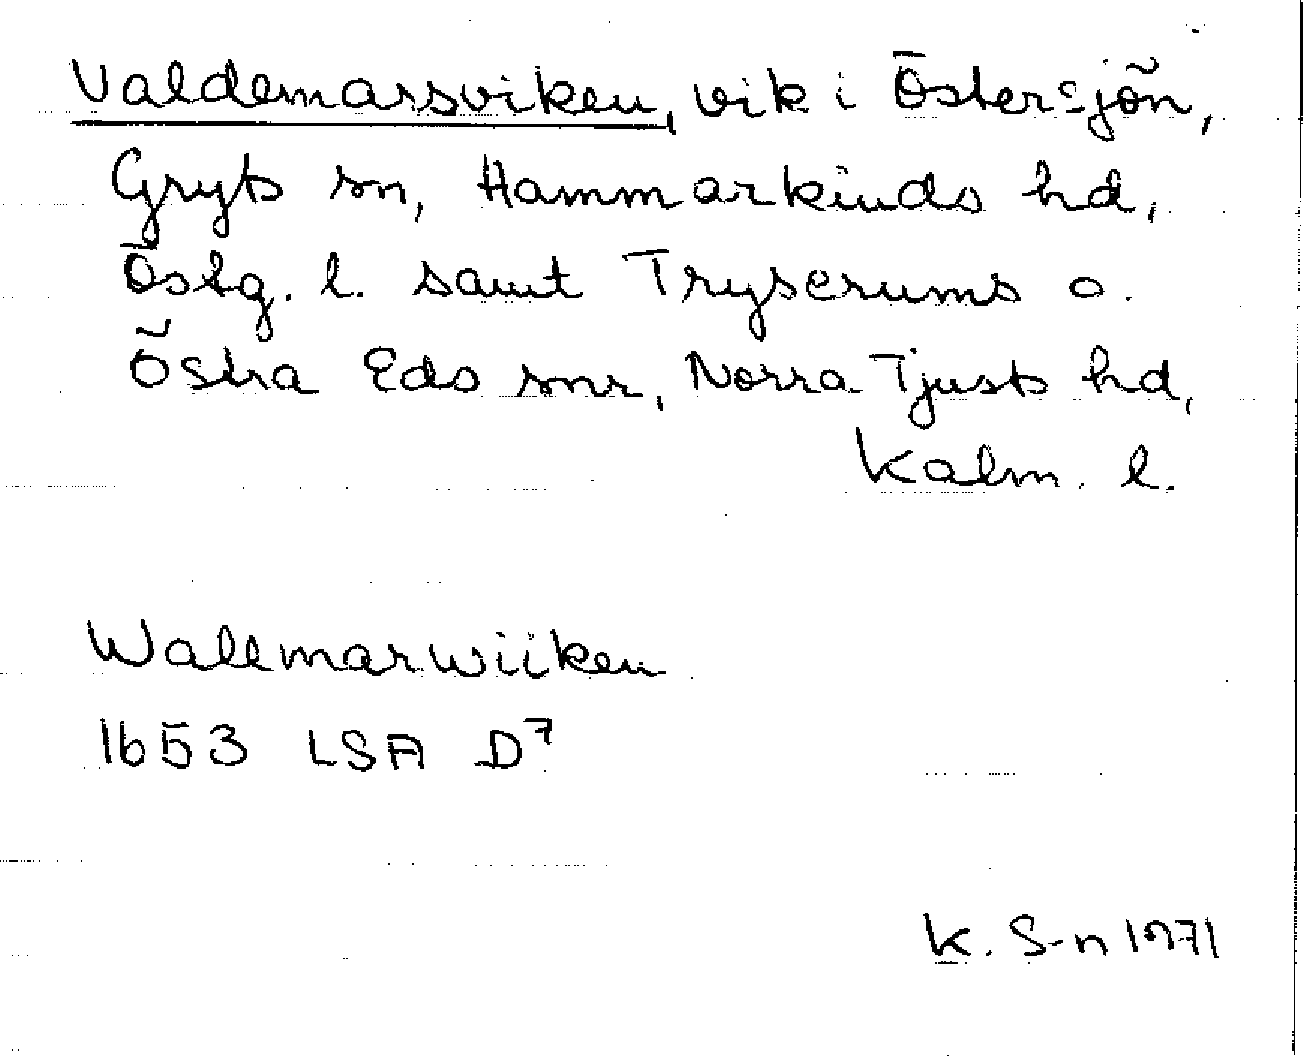 Valdemarsviken, vik i Östersjön,
Gryts sn, Hammarkinds hd,
Östg. l. samt Tryserums o.
Östra Eds snr, Norra Tjusts hd,
Kalm. l.
Wallmarwiiken
1653 LSA D7
K. S-n 1971